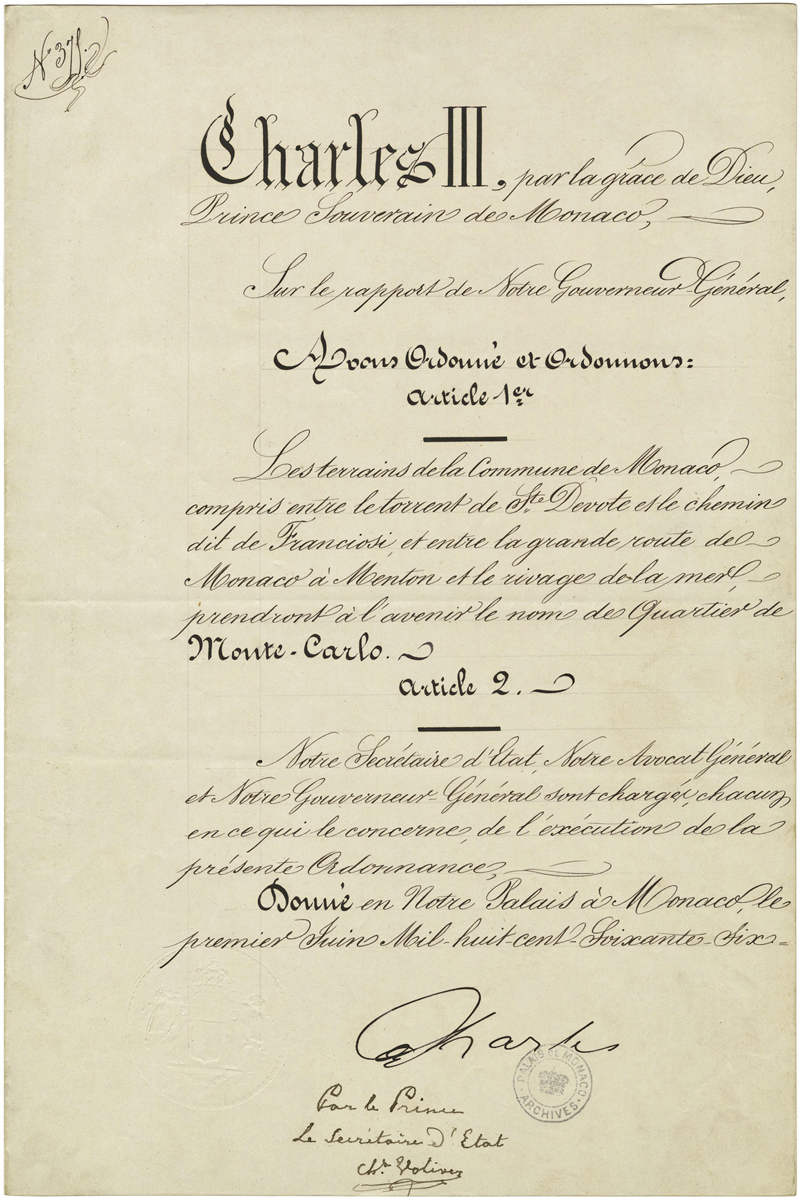 Charles III, par la grâce de Dieu,
Prince Souverain de Monaco,
Sur le rapport de Notre Gouverneur-Général,
Avons Ordonné et Ordonnons:
Article 1er
Les terrains de la Commune de Monaco,
compris entre le torrent de Ste Dévote et le chemin
dit de Franciosi, et entre la grande route de
Monaco à Menton et le rivage de la mer,
prendront à l'avenir le nom de Quartier de
Monte-Carlo.
Article 2.
Notre Secrétaire d'Etat, Notre Avocat Général
et Notre Gouverneur-Général sont chargés, chacun
en ce qui le concerne, de l'exécution de la
présente Ordonnance,
Donné en Notre Palais à Monaco, le
premier Juin Mil-huit-cent-Soixante-Six=
Charles
PALAIS DE MONACO
ARCHIVES
Par le Prince
Le Secrétaire d'Etat